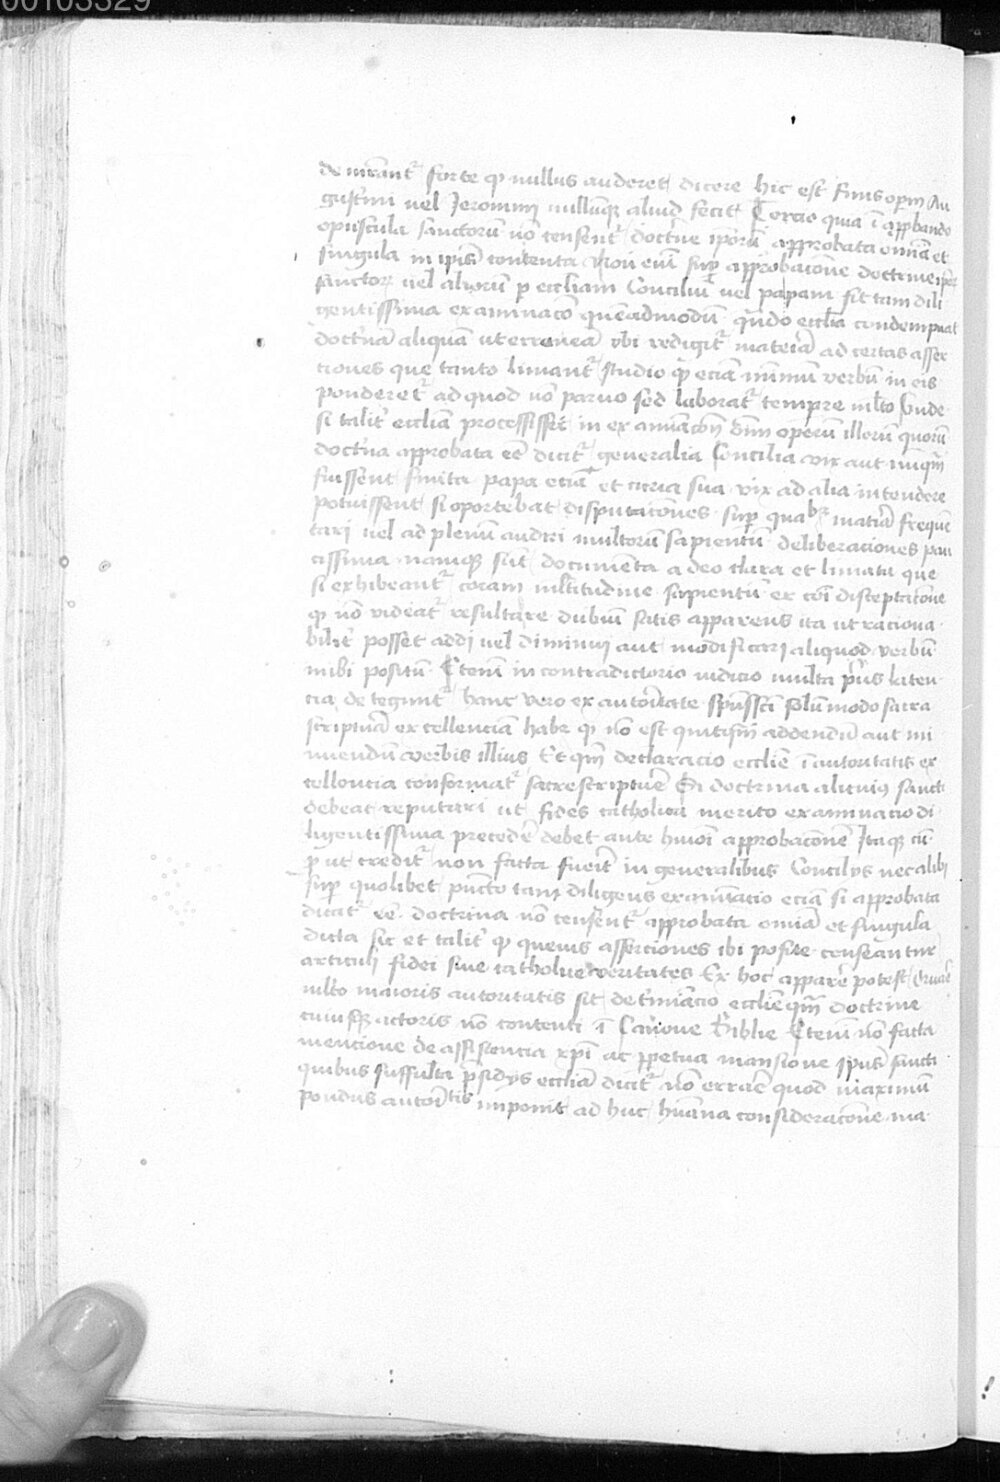 00103329
de mirant̉ forte qͥ nullus auderet dicere hic est finis operū Au
gustini uel Jeronimi nullūqꝫ aliud fecit Tercio quia ī approbando
opuscula sanctorū nō censent̉ doctrine ip̄orū approbata omīa et
singula in ipīs contenta Non enī sup̄ approbacōne doctrine
sanctoꝝ uel alioꝝ p eccliam Conciliū uel papam fit tam dili
gentissima examinacō quēadmodū quādo ecclīa condempnat
doctrīā aliquā ut erroneā vbi redigit̉ materīa ad certas asser
tiones que tanto limant̉ studio qͣ eciā minimū verbū in eis
ponderet̉ ad quod nō paruo sed laborat̉ tempre mlto Unde
si talit̉ eccliā processisset in examīacōn oīm operū illorū quorū
doctrīa approbata eē dicit̉ generalia Concilia vix aut nūqͣ
fuissent finita papa eciā et curia sua vix ad alia intendere
potuissent si oportebat disputacōnes sup̄ quabꝫ matīa frequē
tari uel ad plenū audiri multorū sapientū deliberaciones pau
cissima namqꝫ sūt documenta adeo clara et limata que
si exhibeant̉ coram mltitudine sapientū ex cōi disceptacōne
qͥ nō videat̉ resultare dubiū satis apparens ita ut raciona
bilit̉ posset addi uel diminui aut modificari aliquod verbū
inibi positū Etenī in contradictorio iudicio multa prius laten
cia deteguntͬ hanc vero ex autoritate spūssci solūmodo sacra
scriptura excellenciam habꝫ qͥ nō est quicqͣ addendū aut mi
nuendū verbis illius Et qm̄ declaracio ecclie ī autoritatis ex
cellencia conformat̉ sacre scripture Si doctrina alicuiꝰ sancti
debeat reputari ut fides catholica merito examinacio di
ligentissima precedē debet ante hmōi approbacōnem Itaqꝫ cū
ꝑ ut credit̉ non facta fuerit in generalibus Concilijs nec alibi
sup̄ quolibet puncto tam diligens examinacio eciā si approbata
dicat̉ eē doctrina nō censent̉ approbata omīa et singula
dicta sic et talit̉ qͥ queuis asserciones ibi posite censeantur
articuli fidei siue catholice veritates Ex hoc apparē potest
mlto maioris autoritatis sit det̄miacio ecclie qͣm doctrine
cuiusqꝫ actoris nō contenti ī Canone biblie Etenī nō facta
mencione de assistencia xp̄i ac ꝑpetua mansione spūs sancti
quibus suffulta p̄sidijs eccliā dicit̉ nō errare quod maximū
pondus autoritatis imponit ad huc hūana consideracōne ma